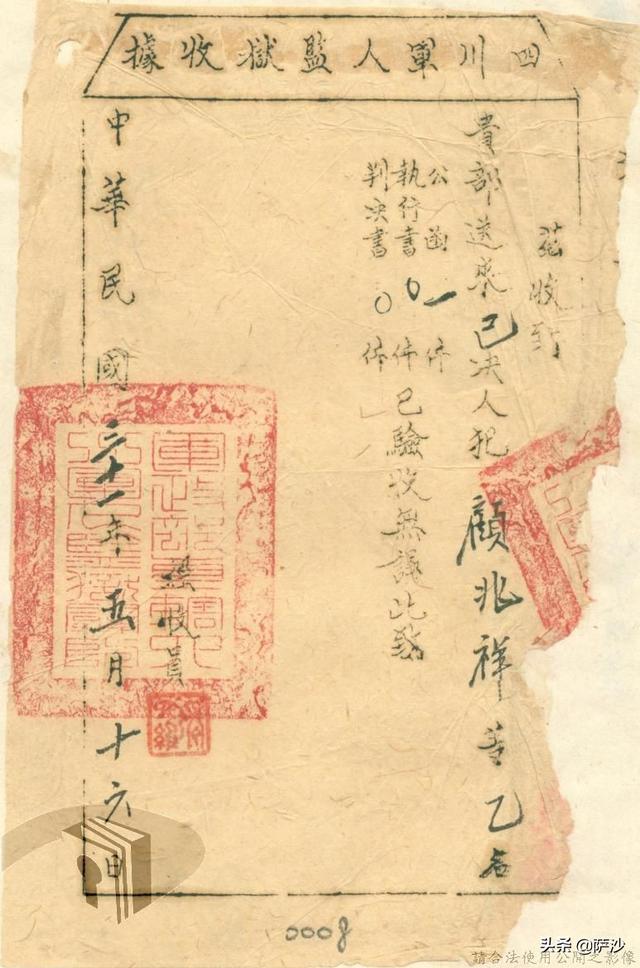 四川軍人監獄收據
茲收到
貴部送來已决人犯顧兆祥等乙名
公函一件
執行書0件
判决書0件
已驗收無議此致
簽收員
中華民國三十一年五月十六日
0008
头条@萨沙
請合法使用公開之影像